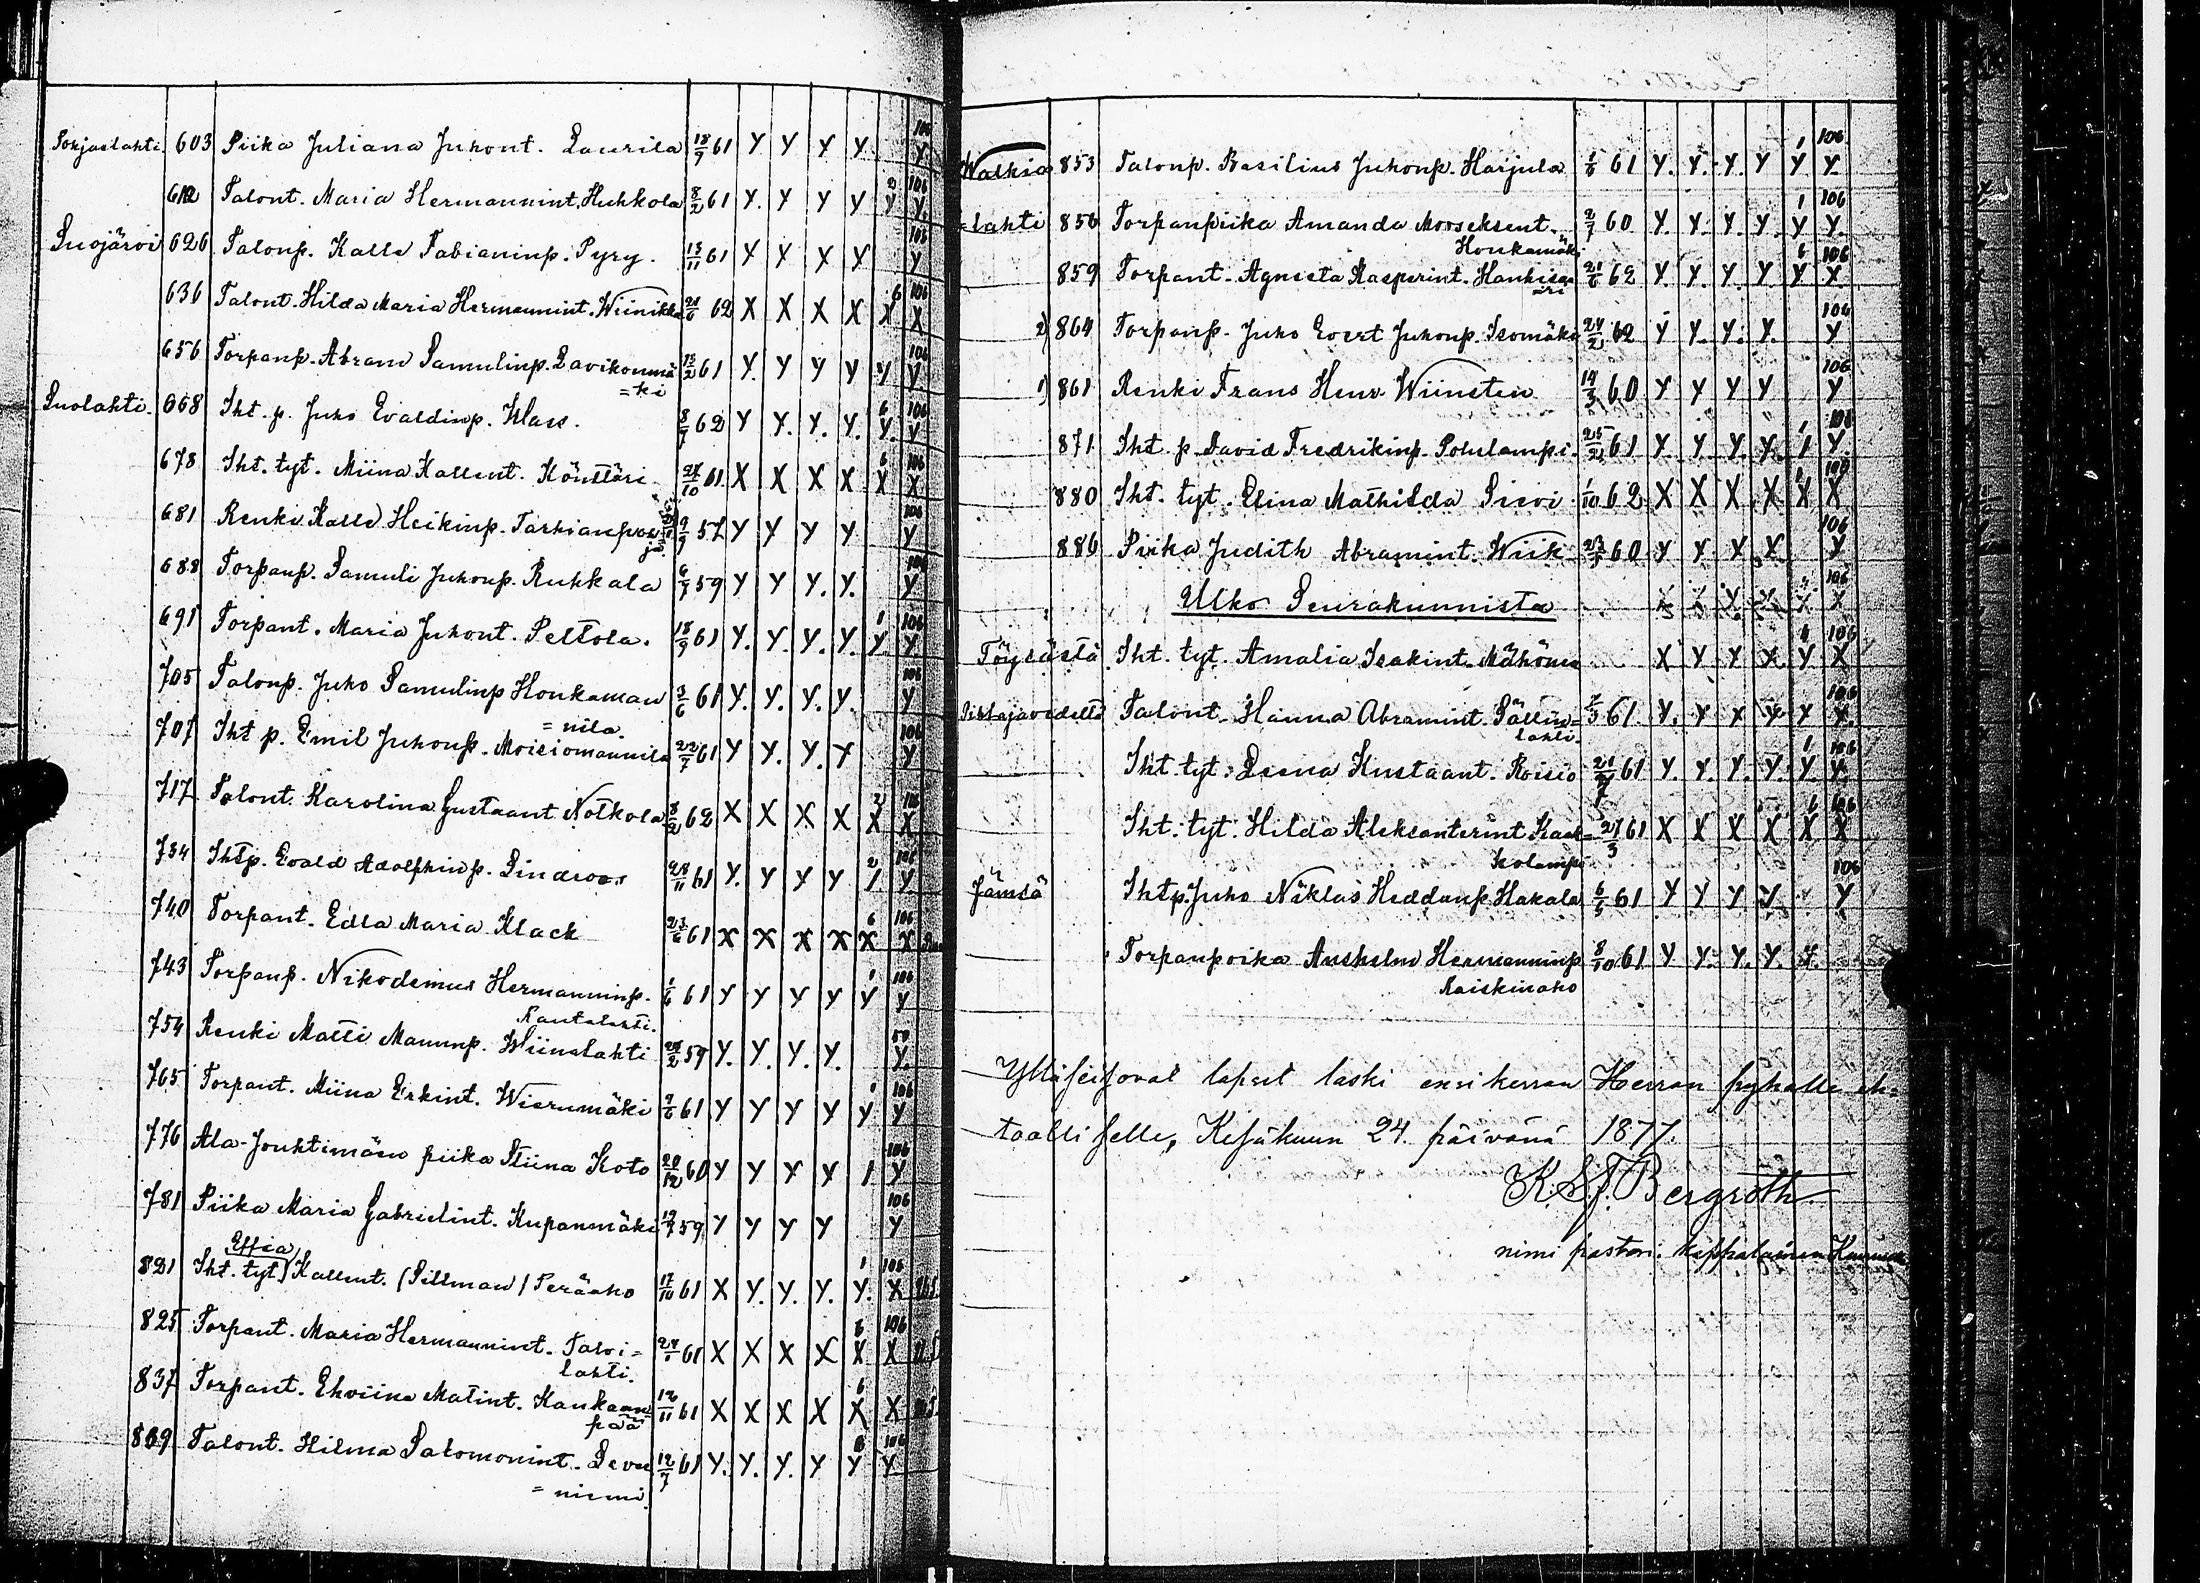 Pohjaslahti 603 Piika Juliana Juhont. Laurila 18/9 61 Y Y Y Y 106 Y
612 Talont. Maria Hermannint. Huhkola 8/2 61 Y. Y Y Y 2 Y 106 Y.
Suojärvi 626 Talonp. Kalle Fabianinp. Pyry. 13/11 61 Y Y Y Y 106 Y
636 Talont. Hilda Maria Hermannint. Wiinikka 21/6 62 X X X X 6 X 106 X
656 Torpanp. Abram Samulinp. Lavikonmä 13/2 61 Y. Y Y Y Y 106 Y
=ki
Suolahti. 668 Iht. p. Juho Evaldinp. Klass. 8/7 62 Y Y. Y. Y. 6 Y. 106 Y
678 Iht. tyt. Miina Kallent. Könttäri 24/10 61 X X X X 6 X 106 X
681 Renki Kalle Heikinp. 9/9 57 Y Y Y Y 106 Y
688 Torpanp. Samuli Juhonp. Ruhkala 6/7 59 Y Y Y. Y. 106 Y
691 Torpant. Maria Juhont. Peltola. 18/9 61 Y. Y. Y. Y. 1 Y. 106 Y.
705 Talonp. Juho Samulinp Honkaman 3/6 61 Y. Y. Y. Y. 106 Y
= nila.
707 Iht p. Emil Juhonp. Moisiomannila 22/7 61 Y Y. Y. Y 106 Y
717 Talont. Karolina Gustaant Notkola 8/2 62 X X X X 2 X 106 X
734 Iht p. Evald Adolfhinp. Lindroos 28/11 61 Y. Y Y Y 2 1 106 Y
740 Torpant. Edla Maria Klack 23/6 61 X X X X 6 X 106 X
743 Torpanp. Nikodemus Hermanninp. 1/6 61 Y Y Y Y 1 Y 106 Y
Rantalahti.
754 Renki Matti Manunp. Wiinolahti 28/2 59 Y. Y. Y. Y. Y.
765 Torpant. Miina Erkint. Wierumäki 9/6 61 Y Y Y Y 1 Y 106 Y
776 Ala-Jouhtimäen piika Stiina Koto 20/12 60 Y Y Y Y 1 106 Y
781 Piika Maria Gabrielint. Kupanmäki 19/7 59 Y Y Y Y 106 Y
Effia
821 Iht. tyt) Kallent. (Sillman / Peräaho 17/10 61 X Y. Y. Y. 1 Y. 106 X
825 Torpant. Maria Hermannint. Talvi= 61 X X X X 6 X 106 X
lahti.
837 Torpant. Ehviina Matint. Kankaan= 12/11 61 X X X X 6 X X
pää
839 Talont. Hilma Salomonint. Leve 12/7 61 Y. Y. Y. Y 6 Y 106 Y
= niemi.
Walkia 853 Talonp. Basilius Juhonp. Harjula 1/6 61 Y. Y. Y. Y 1 Y 106 Y.
=lahti 856 Torpanpiika Amanda Mooseksent. 2/7 60 Y. Y. Y. Y. 1 Y 106 Y.
Honkamäki
859 Torpant. Agneeta Kasperint. Hankisa 21/6 62 Y. Y. Y. Y 6 Y 106 X
=iri
2) 864 Torpanp. Juho Evert Juhonp. Isomäki 24/2 62 Y Y. Y. Y. 106 Y
1) 861 Renki Frans Henr. Wiinsten 14/3 60 Y Y Y Y 106 Y
871 Iht. p David Fredrikinp. Polulampi. 25/2 61 Y. Y. Y. Y. 1 1 106 Y.
880 Iht. tyt. Elina Mathilda Sievi 1/10 62 X X X X X 106 X
886 Piika Judith Abramint. Wiik 60 Y Y X X. 106 Y
Ulko Seurakunnista X X X X X 106 X
Töysästä Iht. tyt. Amalia Isakint. Mähönen X Y Y X. Y 106 X
Pihlajavedeltä Talont. Hanna Abramint. Sällin= 61 Y. Y X Y Y 106 Y.
lahti.
Iht. tyt. Leena Kustaant. Roisio 21/7 61 Y. Y. Y. Y. 1 Y 106 Y.
Iht. tyt. Hilda Aleksanterint Kaak= 27/3 61 X X X X 6 X 106 X
kolampi
Jämsä Iht p. Juho Niklas Heddanp Hakala 6/5 61 Y Y Y Y 106 Y
Torpanpoika Anshelm Hermanninp 8/10 61 Y Y. Y. Y. Y.
Raiskinaho
Ylläseisovat lapset laski ensikerran Herran pyhälle eh=
toolliselle, Kesäkuun 24 päivänä 1877.
K. S. J. Bergroth
nimi pastori. kappalainen